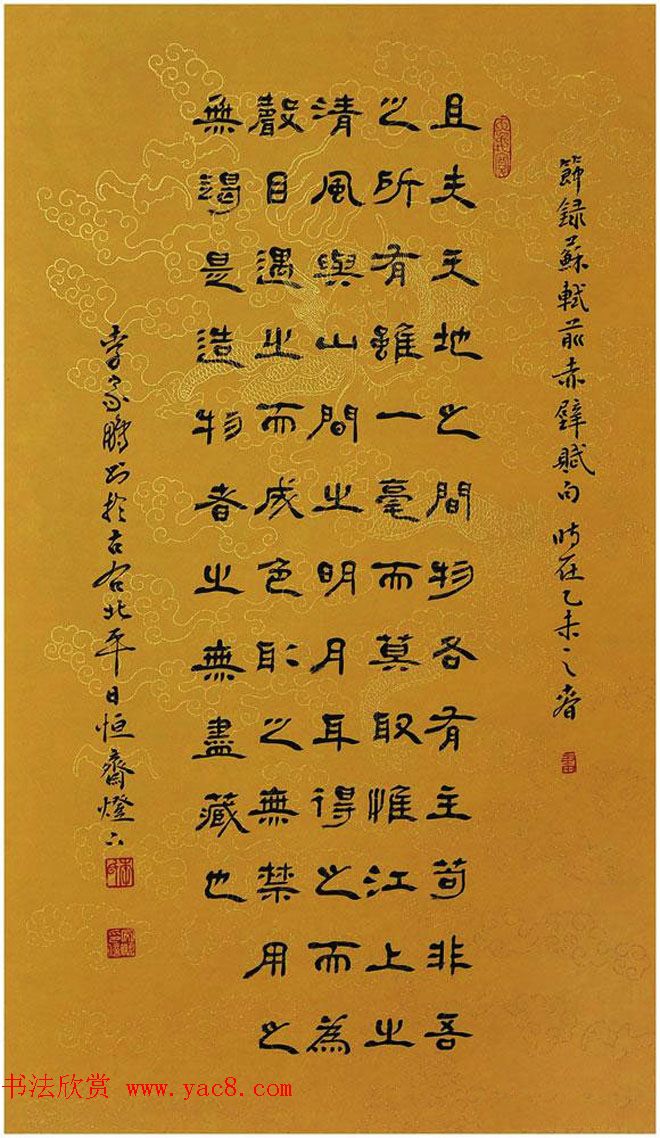 節録蘇軾前赤壁賦句 時在乙未之春
且夫天地之間物各有主苟非吾
之所有雖一毫而莫取惟江上之
清風與山間之明月耳得之而為
聲目遇之而成色取之無禁用之
無竭是造物者之無盡藏也
李家鵬书於古台北平日恒齋燈下
书法欣赏 www.yac8.com